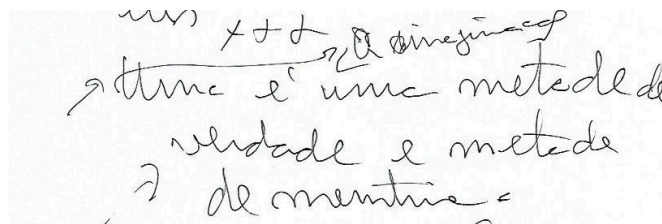 a imaginação
uma é uma metade de
verdade e metade
de mentira.